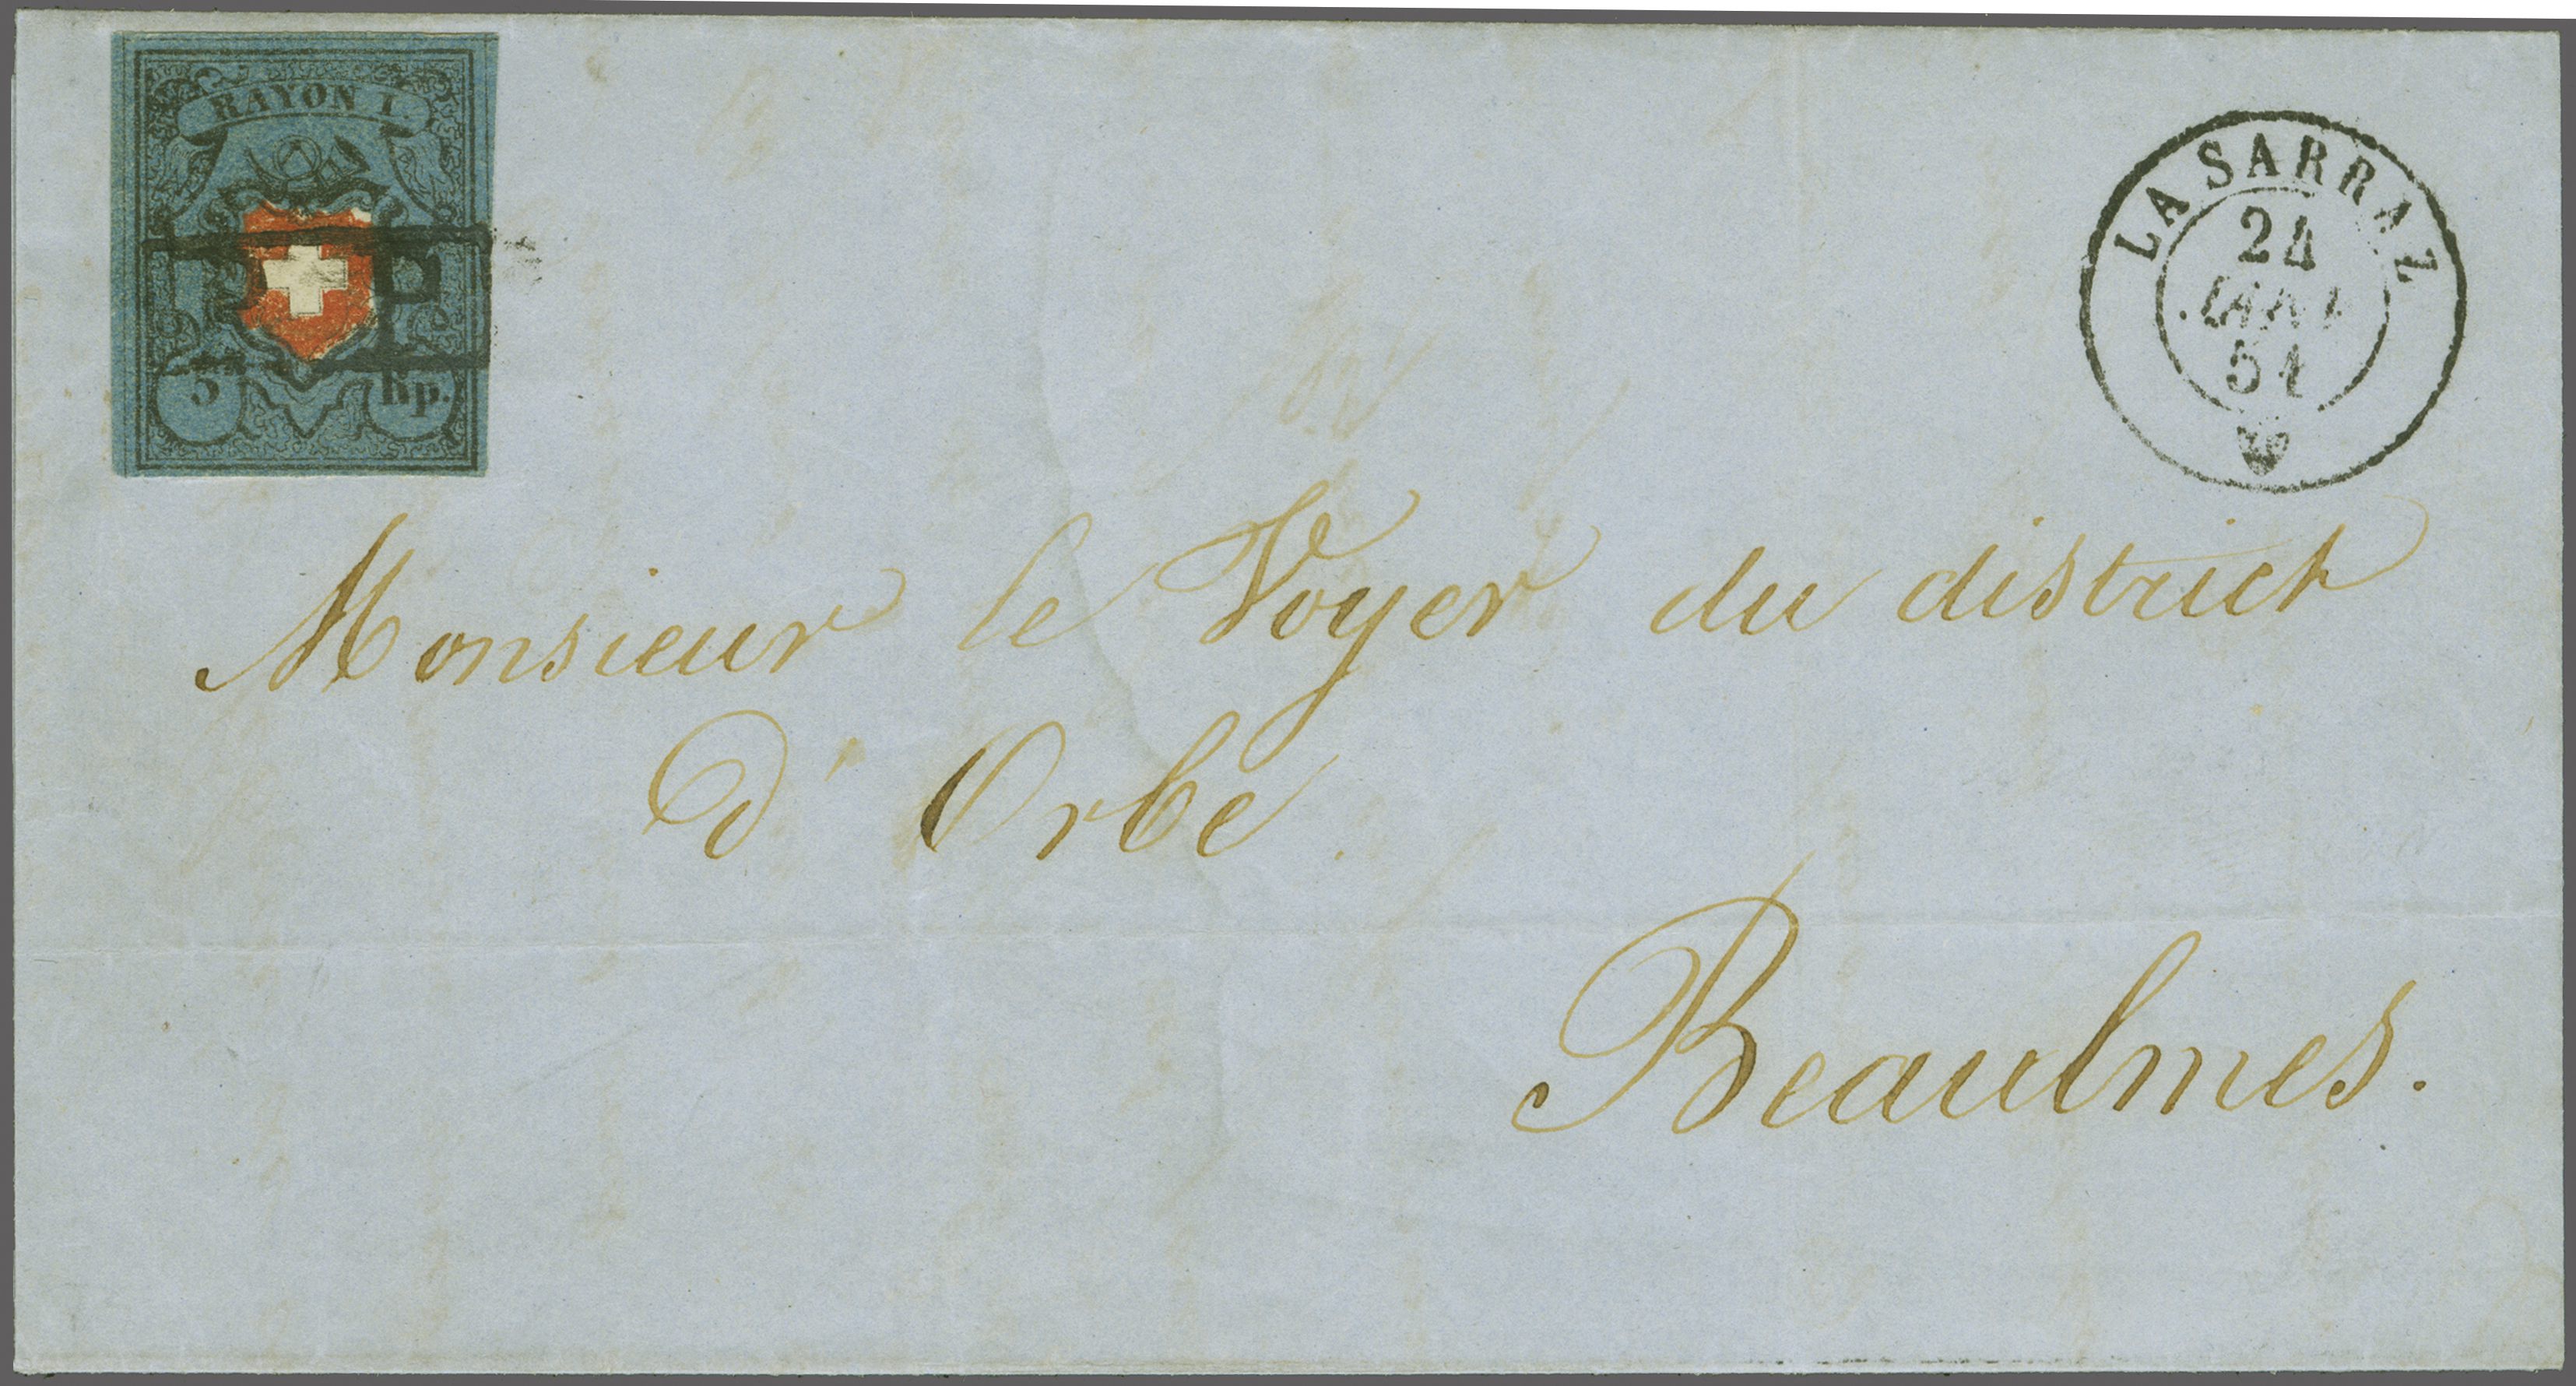 RAYON I.
P
5 Rp.
LA SARRAZ
24
JANV
51
Monsieur le Voyer du district
d'Orbe
Beaulmes.